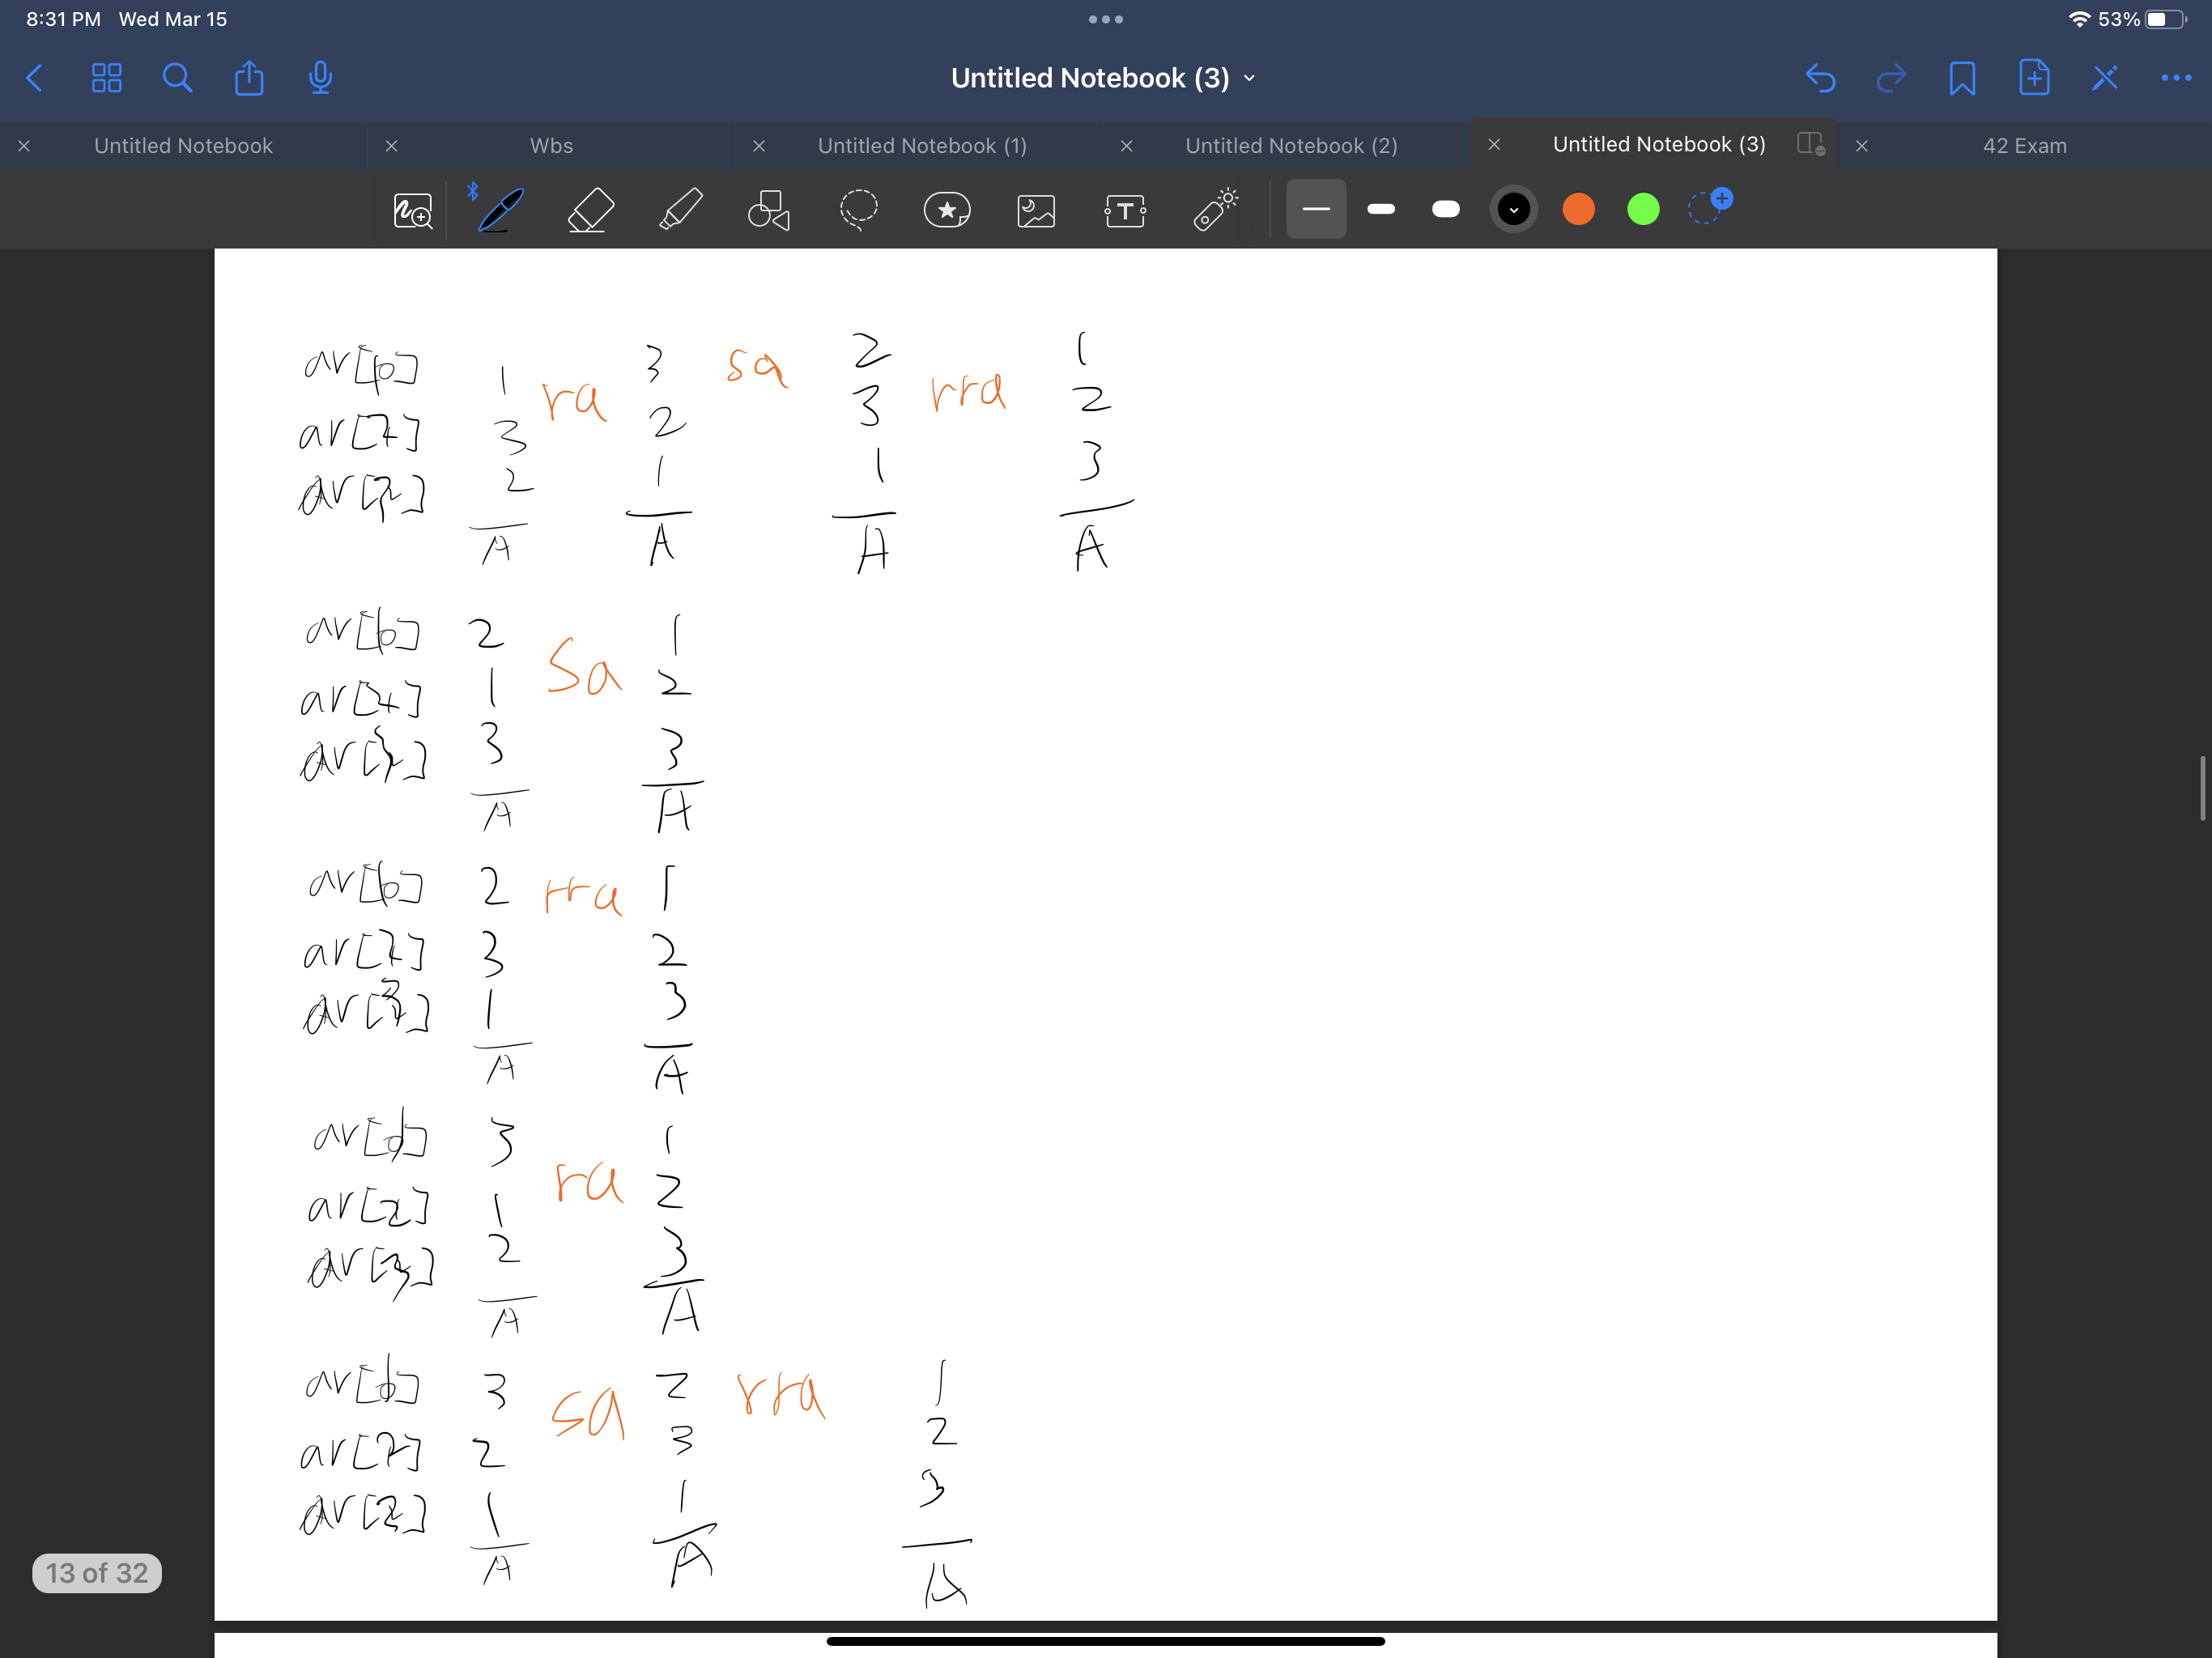 8:31 PM Wed Mar 15
53%
Untitled Notebook (3)
Untitled Notebook
Wbs
Untitled Notebook (1)
Untitled Notebook (2)
Untitled Notebook (3)
42 Exam
1 ra 3 sa 2 rra 1
3 2 3 2
2 1 1 3
A A A A
2 Sa 1
1 2
3 3
A A
2 rra 1
3 2
1 3
A A
3 ra 1
1 2
2 3
A A
3 sa 2 rra 1
2 3 2
1 1 3
A A A
13 of 32